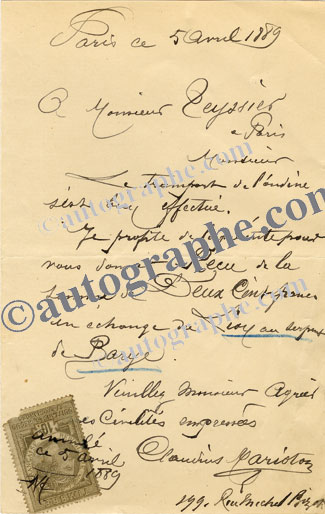 Paris ce 5 avril 1889
A Monsieur Teyssier
a Paris
Monsieur
Le transport de l'ondine
s'est effectué.
Je profite de la pour
vous Recu de la
de Deux Cent francs
en échange du au serpent
de Barye.
Veuillez Monsieur Agréer
Civilités empressées
Claudius Marioton
199. Rue Michel
annulé
ce 5 avril
1889
©autographe.com
©autographe.com
©autographe.com
©autographe.com
©autographe.com